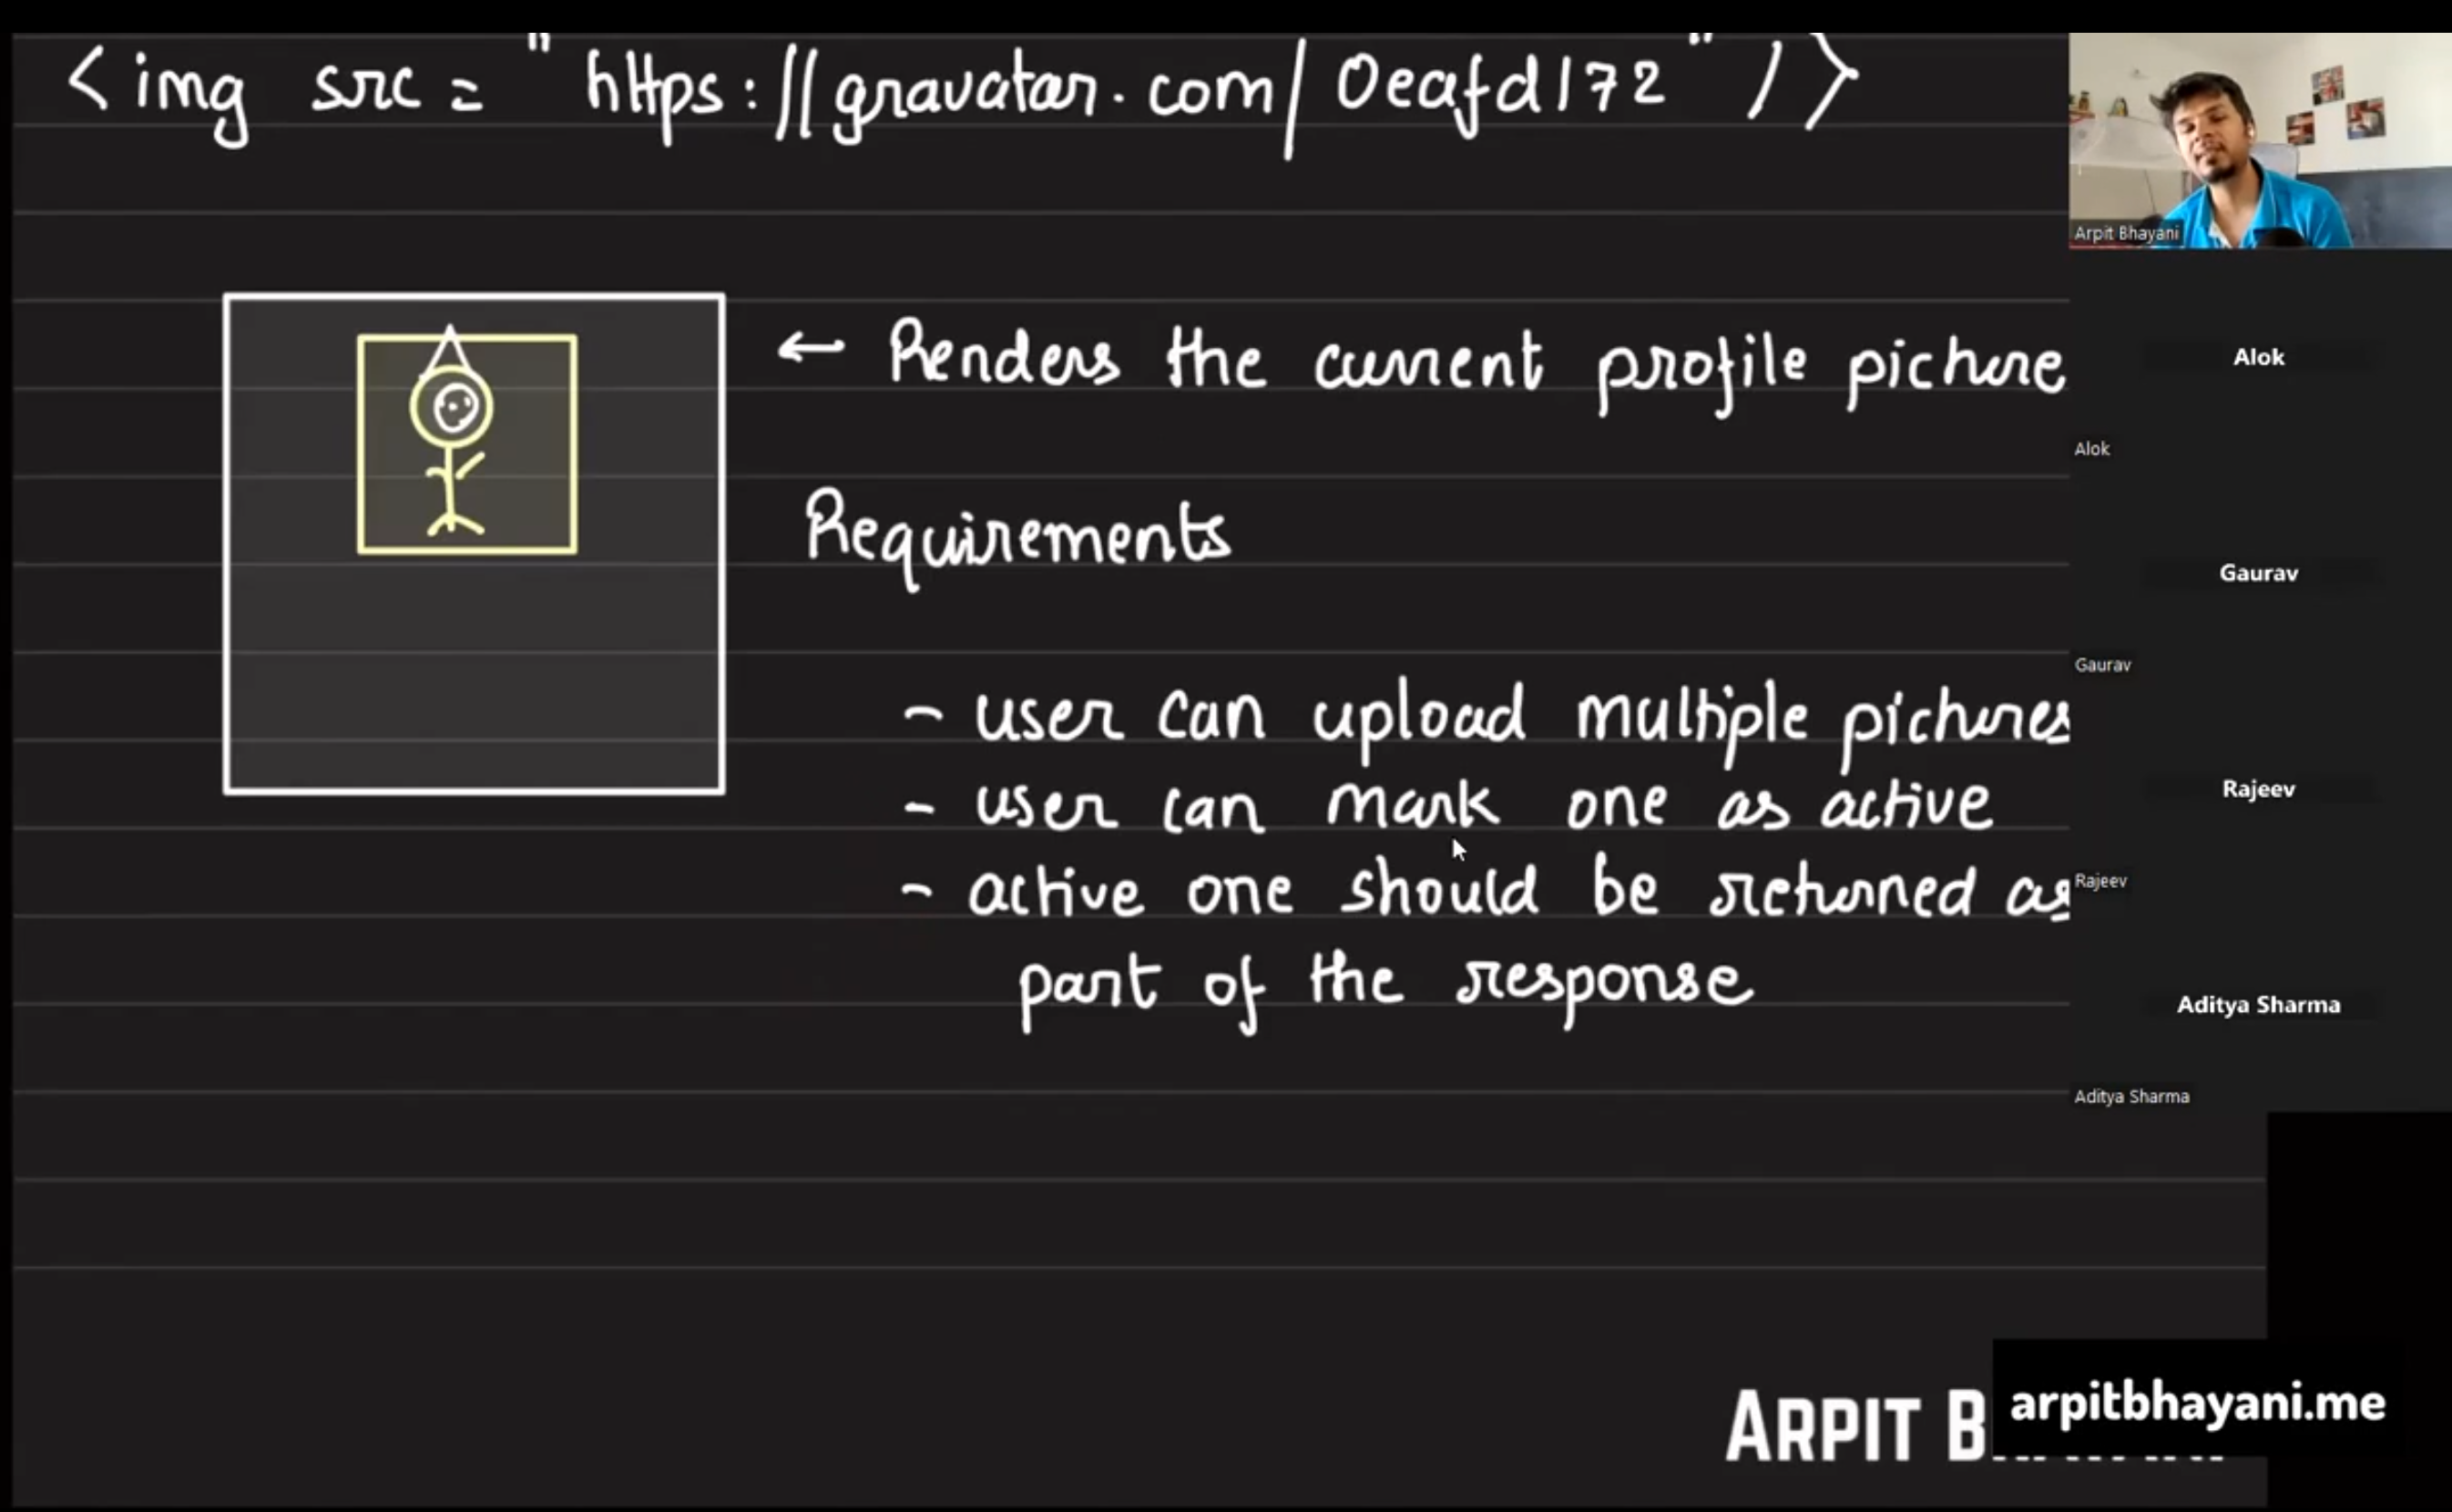 <img src = "https://gravatar.com/0eafd172" />
← Renders the current profile picture
Requirements
- user can upload multiple pictures
- user can mark one as active
- active one should be returned as
part of the response
Arpit Bhayani
Alok
Alok
Gaurav
Gaurav
Rajeev
Rajeev
Aditya Sharma
Aditya Sharma
ARPIT B
arpitbhayani.me